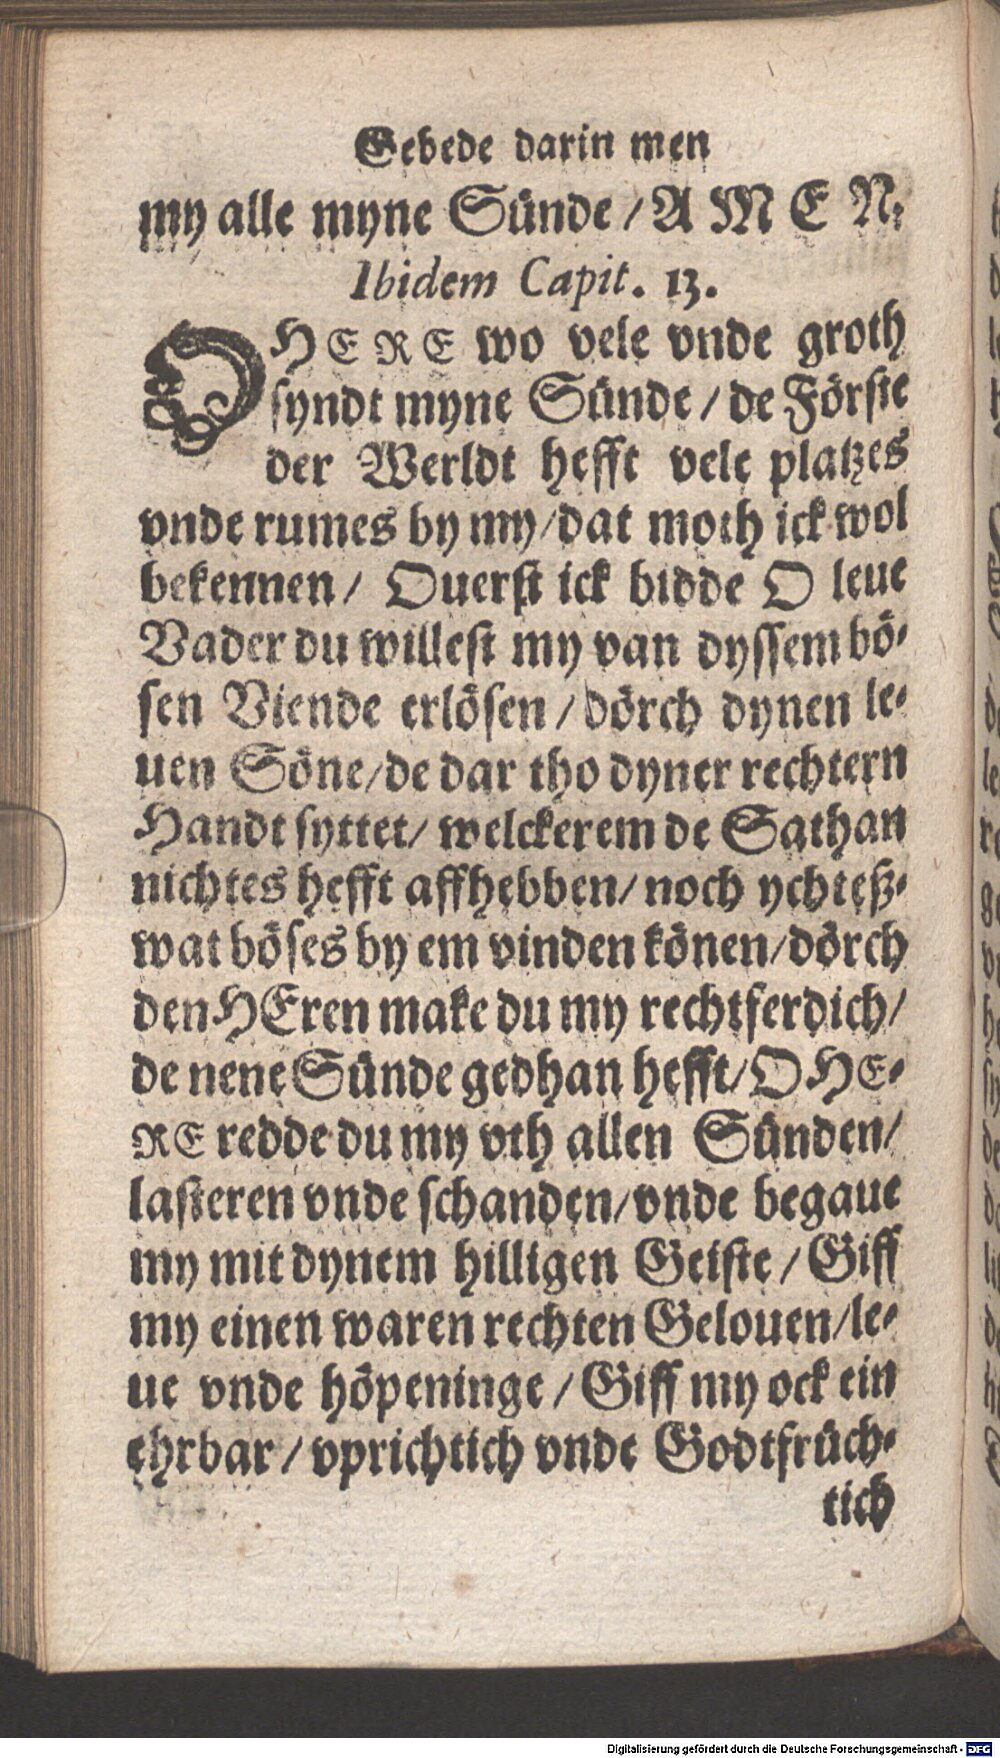 Gebede darin men
my alle myne Sünde / A M E N.
Ibidem Capit. 13.
O HERE wo vele vnde groth
syndt myne Sünde / de Förste
der Werldt hefft vele platzes
vnde rumes by my / dat moth ick wol
bekennen / Ouerst ick bidde O leue
Vader du willest my van dyssem bö-
sen Viende erlösen / dörch dynen le-
uen Söne / de dar tho dyner rechtern
Handt syttet / welckerem de Sathan
nichtes hefft affhebben / noch ychteß-
wat böses by em vinden könen / dörch
den HEren make du my rechtferdich /
de nene Sünde gedhan hefft / O HE-
RE redde du my vth allen Sünden /
lasteren vnde schanden / vnde begaue
my mit dynem hilligen Geiste / Giff
my einen waren rechten Gelouen / le-
ue vnde höpeninge / Giff my ock ein
ehrbar / vprichtich vnde Godtfrüch-
tich
Digitalisierung gefördert durch die Deutsche Forschungsgemeinschaft - DFG